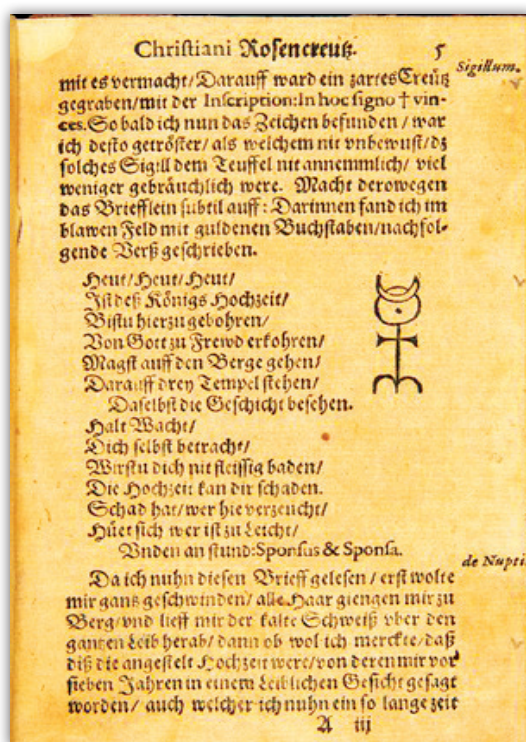 Christiani Rosencreutz. 5
Sigillum.
mit es vermacht/Darauff ward ein zartes Creütz
gegraben/mit der Inscription:In hoc signo † vin-
ces. So bald ich nun das Zeichen befunden / war
ich desto getröster/als welchem nit vnbewust/dz
solches Sigill dem Teuffel nit annemmlich/ viel
weniger gebräuchlich were. Macht derowegen
das Briefflein subtil auff: Darinnen fand ich im
blawen Feld mit guldenen Buchstaben/nachfol-
gende Verß geschrieben.
Heut/Heut/Heut/
Ist deß Königs Hochzeit/
Bistu hierzu gebohren/
Von Gott zu Frewd erkohren/
Magst auff den Berge gehen/
Darauff drey Tempel stehen/
Daselbst die Geschicht besehen.
Halt Wacht/
Dich selbst betracht/
Wirstu dich nit fleissig baden/
Die Hochzeit kan dir schaden.
Schad hat/wer hie verzeucht/
Hüet sich wer ist zu Leicht/
Vnden an stund:Sponsus & Sponsa.
de Nupti
Da ich nuhn diesen Brieff gelesen / erst wolte
mir gans geschwinden/ alle Haar giengen mir zu
Berg/vnd lieff mir der kalte Schweiß vber den
gantzen Leib herab/ dann ob wol ich merckte/daß
diß die angestelt Hochzeit were/von deren mir vor
sieben Jahren in einem Leiblichen Gesicht gesagt
worden/ auch welcher ich nuhn ein so lange zeit
A iij